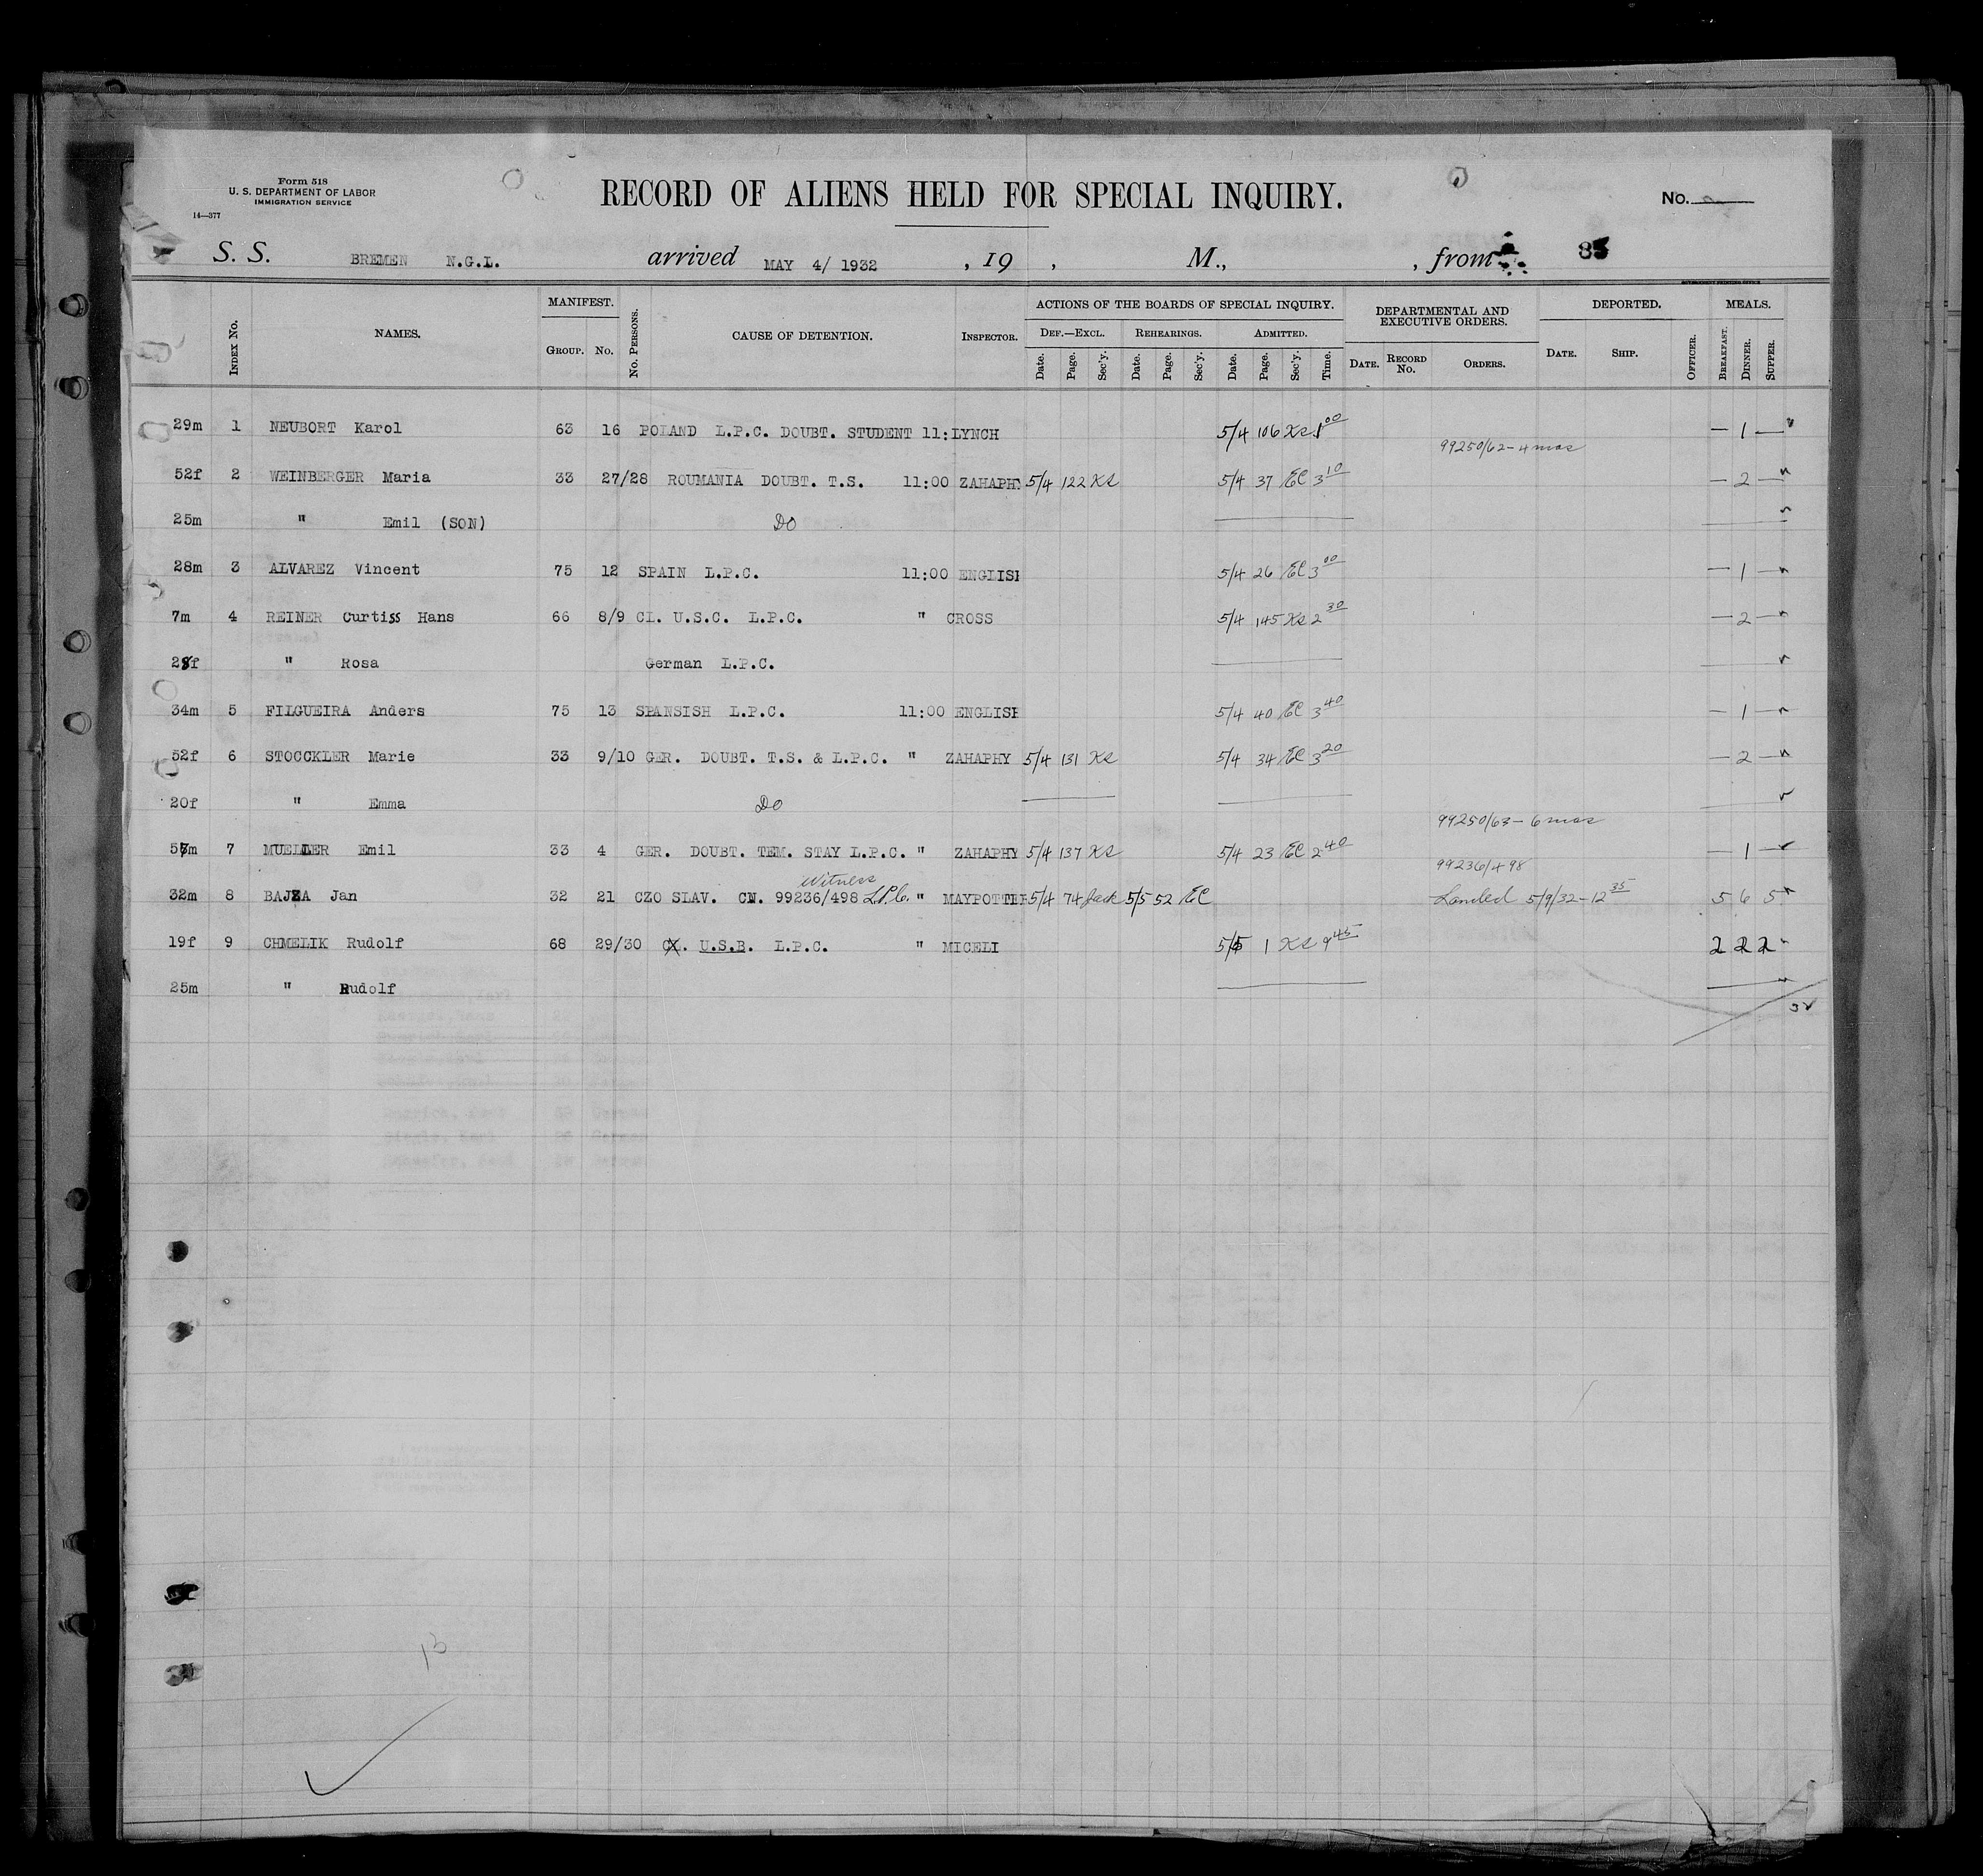 Form 518
U. S. DEPARTMENT OF LABOR
IMMIGRATION SERVICE
14—377
RECORD OF ALIENS HELD FOR SPECIAL INQUIRY.
No.
S. S. BREMEN N.G.L. arrived MAY 4/ 1932 , 19 , M., , from 
MANIFEST. ACTIONS OF THE BOARDS OF SPECIAL INQUIRY. DEPARTMENTAL AND EXECUTIVE ORDERS. DEPORTED. MEALS.
INDEX No. NAMES. GROUP. No. No. PERSONS. CAUSE OF DETENTION. INSPECTOR. DEF.—EXCL. REHEARINGS. ADMITTED.
Date. Page. Sec'y. Date. Page. Sec'y. Date. Page. Sec'y. Time. DATE. RECORD No. ORDERS. DATE. SHIP. OFFICER. BREAKFAST. DINNER. SUPPER.
29m 1 NEUBORT Karol 63 16 POLAND L.P.C. DOUBT. STUDENT 11: LYNCH 5/4 106 KS 1 00 — 1 —
99250/62 - 4 mos
52f 2 WEINBERGER Maria 33 27/28 ROUMANIA DOUBT. T.S. 11:00 ZAHAPHY 5/4 122 KS 5/4 37 EC 3 10 — 2 —
25m " Emil (SON) DO
28m 3 ALVAREZ Vincent 75 12 SPAIN L.P.C. 11:00 ENGLISH 5/4 26 EC 3 00 — 1 —
7m 4 REINER Curtiss Hans 66 8/9 CL. U.S.C. L.P.C. " CROSS 5/4 145 KS 2 30 — 2 —
" Rosa German L.P.C.
34m 5 FILGUEIRA Anders 75 13 SPANSISH L.P.C. 11:00 ENGLISH 5/4 40 EC 3 40 — 1 —
52f 6 STOCCKLER Marie 33 9/10 GER. DOUBT. T.S. & L.P.C. " ZAHAPHY 5/4 131 KS 5/4 34 EC 3 20 — 2 —
20f " Emma DO
99250/63 - 6 mos
7 MUELLER Emil 33 4 GER. DOUBT. TEM. STAY L.P.C. " ZAHAPHY 5/4 137 KS 5/4 23 EC 2 40 — 1 —
Witness 99236/498
32m 8 BAJZA Jan 32 21 CZO SLAV. CN. 99236/498 L.P.C. " MAYPOTTER 5/4 74 Jack 5/5 52 EC Landed 5/9/32 - 12 35 5 6 5
19f 9 CHMELIK Rudolf 68 29/30 U.S.B. L.P.C. " MICELI 5/5 1 KS 9 45 2 2 2
25m " Rudolf
13